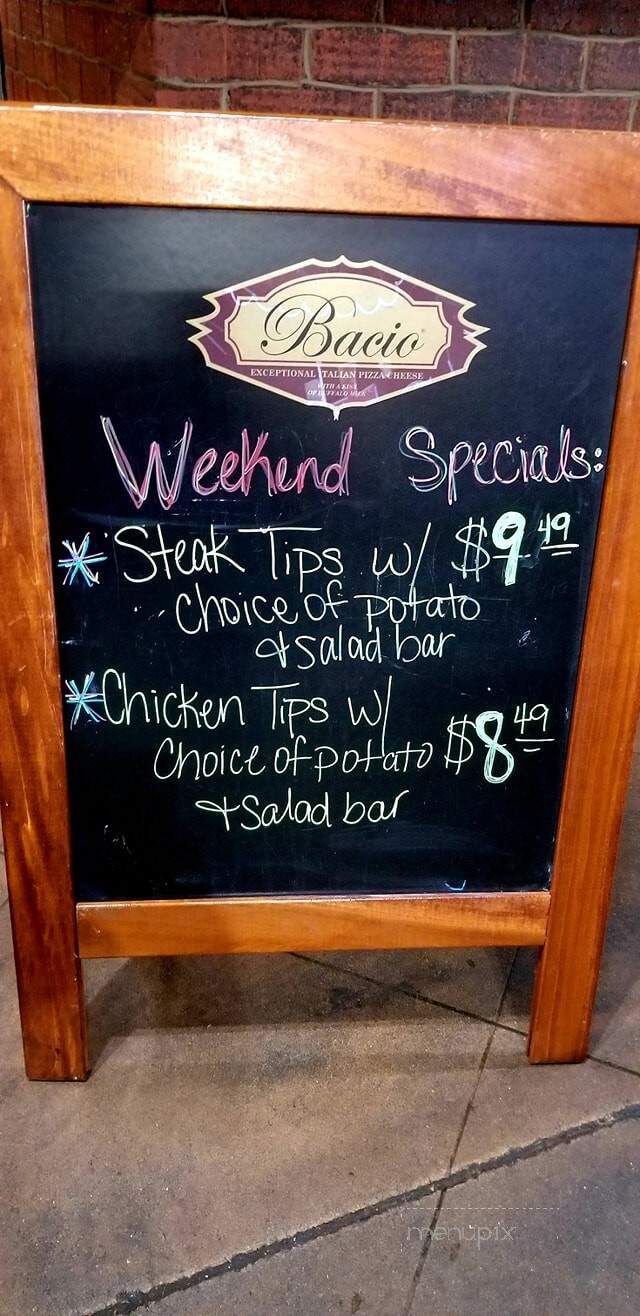 Bacio
EXCEPTIONAL ITALIAN PIZZA CHEESE
WITH A KISS
OF BUFFALO MILK
Weekend Specials:
* Steak Tips w/ $9 49
choice of potato
& salad bar
* Chicken Tips w/
Choice of potato $8 49
& Salad bar
menupix